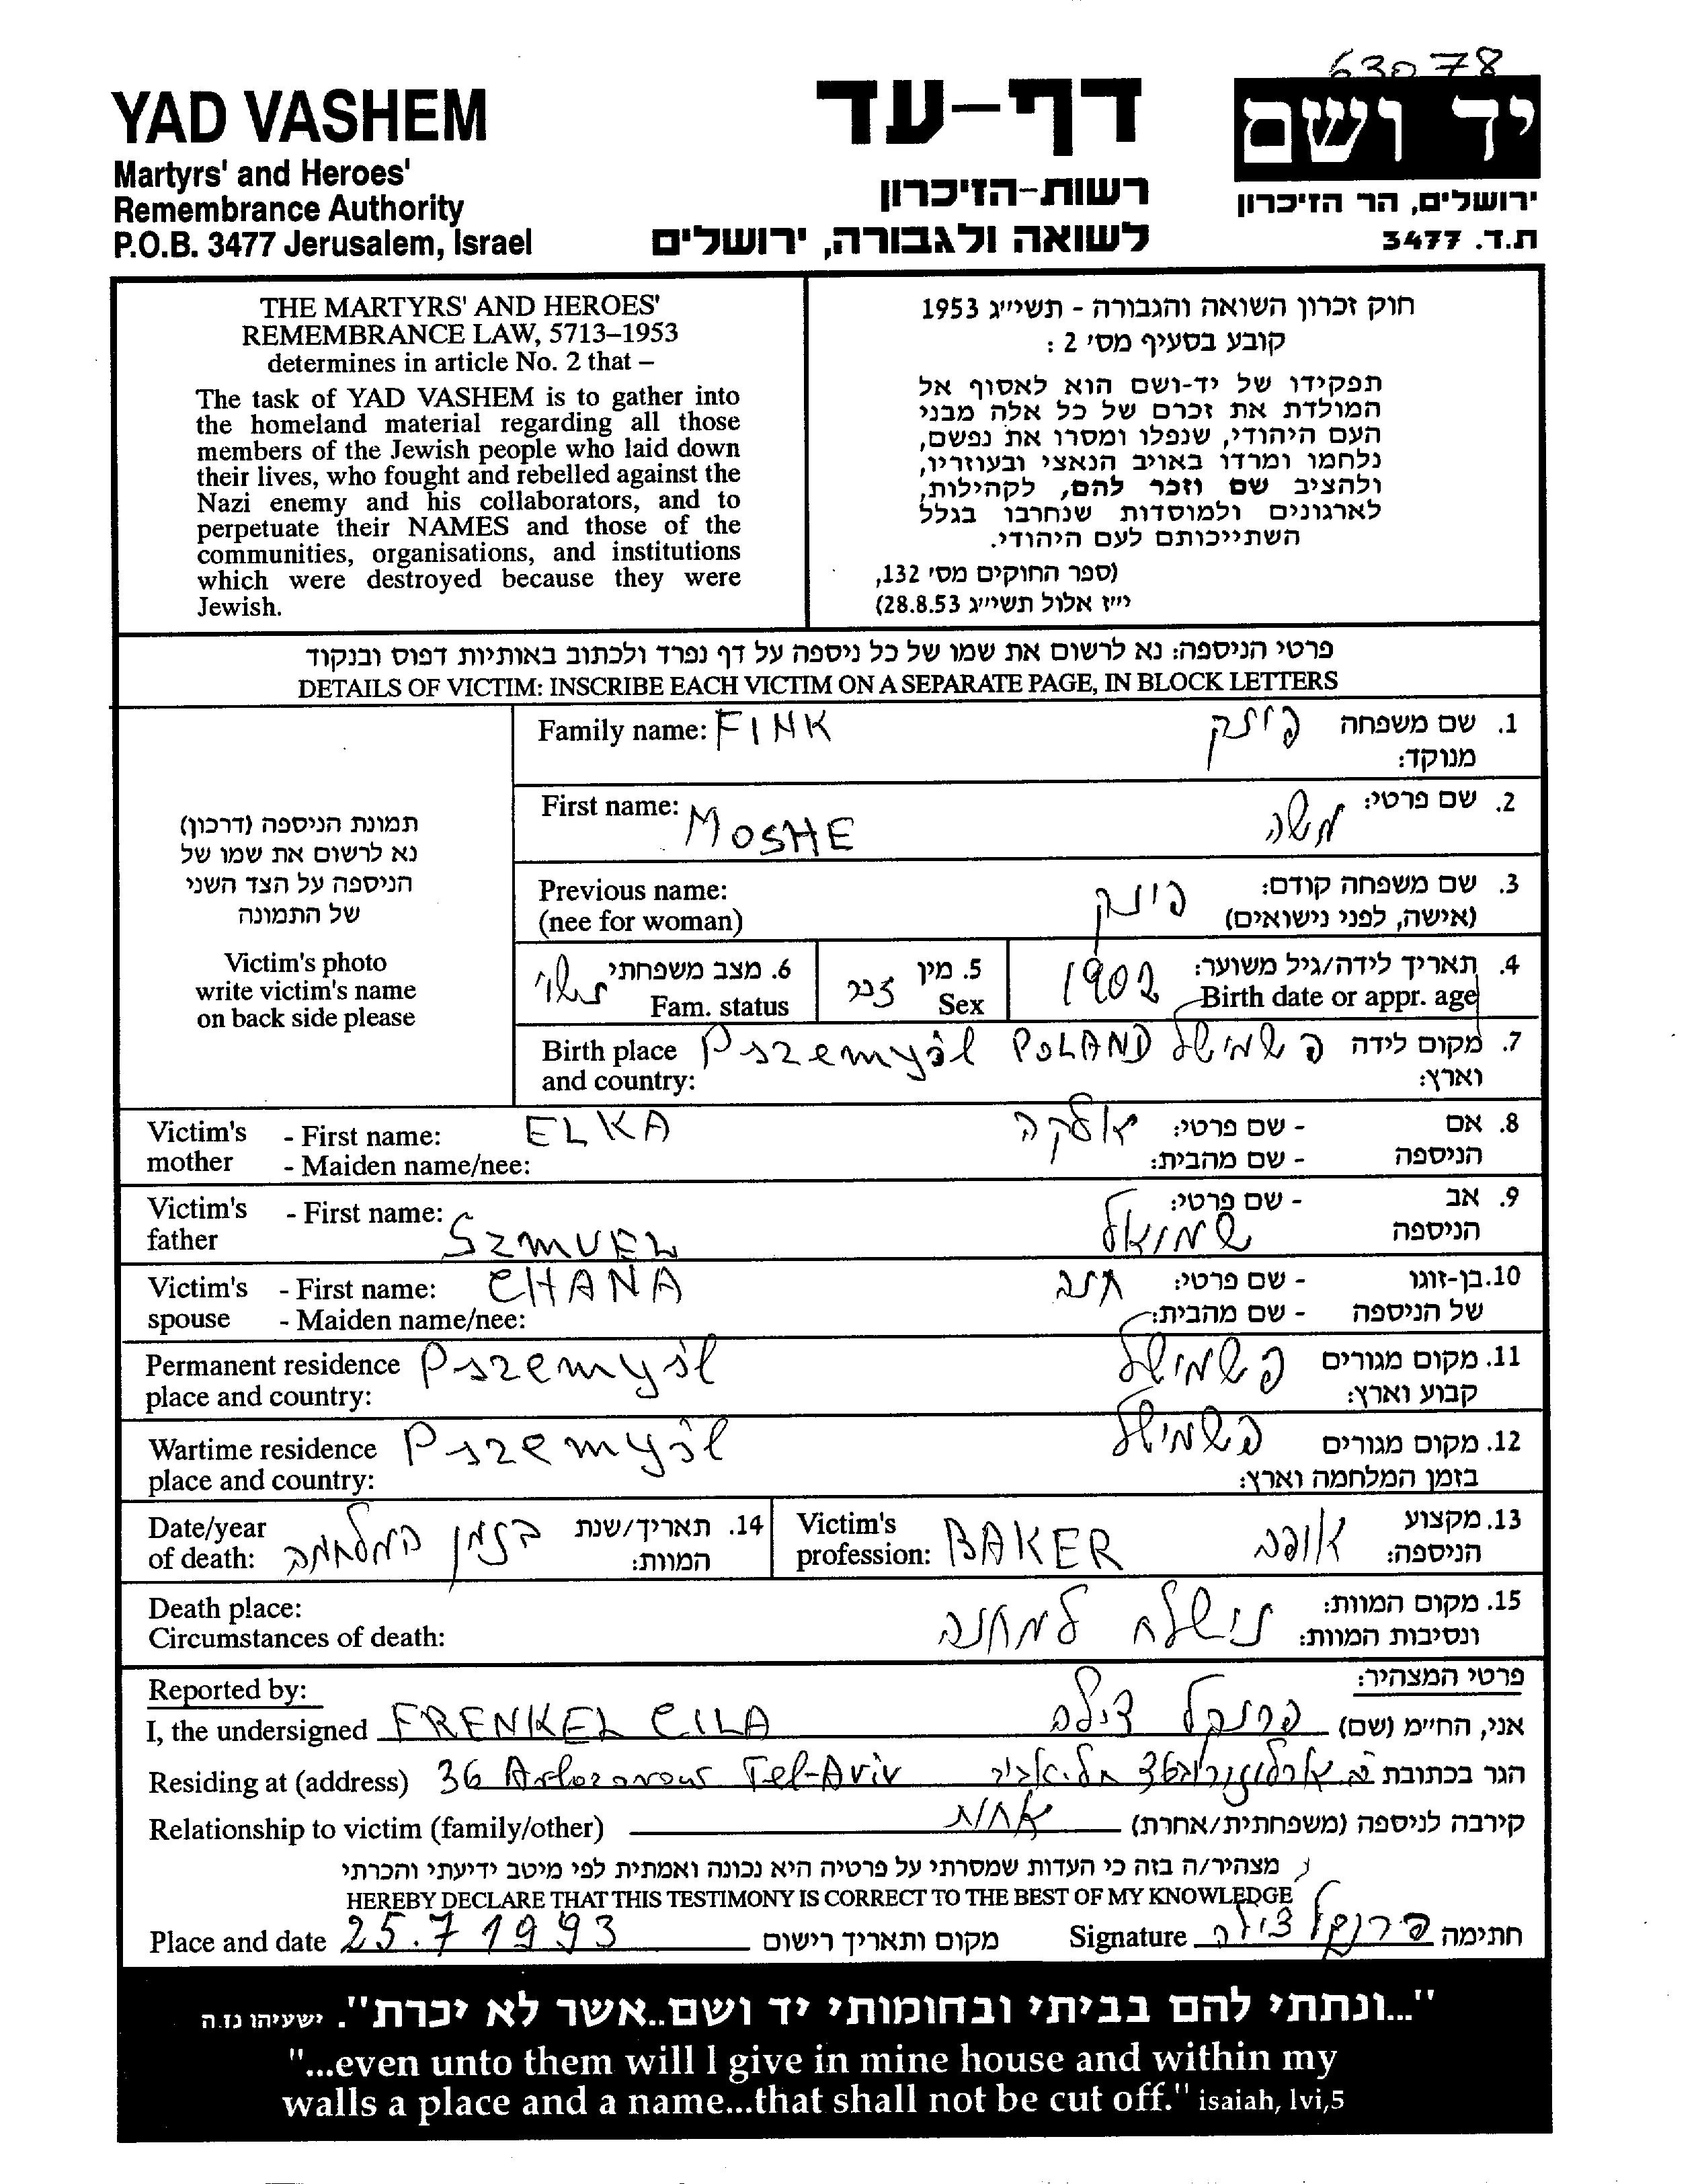 63078
YAD VASHEM
Martyrs' and Heroes'
Remembrance Authority
P.O.B. 3477 Jerusalem, Israel
דף-עד
רשות-הזיכרון
לשואה ולגבורה, ירושלים
יד ושם
ירושלים, הר הזיכרון
ת.ד. 3477
THE MARTYRS' AND HEROES'
REMEMBRANCE LAW, 5713–1953
determines in article No. 2 that –
The task of YAD VASHEM is to gather into
the homeland material regarding all those
members of the Jewish people who laid down
their lives, who fought and rebelled against the
Nazi enemy and his collaborators, and to
perpetuate their NAMES and those of the
communities, organisations, and institutions
which were destroyed because they were
Jewish.
חוק זכרון השואה והגבורה - תשי״ג 1953
קובע בסעיף מס׳ 2 :
תפקידו של יד-ושם הוא לאסוף אל
המולדת את זכרם של כל אלה מבני
העם היהודי, שנפלו ומסרו את נפשם,
נלחמו ומרדו באויב הנאצי ובעוזריו,
ולהציב שם וזכר להם, לקהילות,
לארגונים ולמוסדות שנחרבו בגלל
השתייכותם לעם היהודי.
(ספר החוקים מס׳ 132,
י״ז אלול תשי״ג 28.8.53)
פרטי הניספה: נא לרשום את שמו של כל ניספה על דף נפרד ולכתוב באותיות דפוס ובנקוד
DETAILS OF VICTIM: INSCRIBE EACH VICTIM ON A SEPARATE PAGE, IN BLOCK LETTERS
תמונת הניספה (דרכון)
נא לרשום את שמו של
הניספה על הצד השני
של התמונה
Victim's photo
write victim's name
on back side please
Family name: FINK פינק 1. שם משפחה
מנוקד:
First name: MOSHE משה 2. שם פרטי:
Previous name: פינק 3. שם משפחה קודם:
(nee for woman) (אישה, לפני נישואים)
נשוי 6. מצב משפחתי זכר 5. מין 1902 4. תאריך לידה/גיל משוער:
Fam. status Sex Birth date or appr. age
Birth place Pszemyśl POLAND פשמישל 7. מקום לידה
and country: וארץ:
Victim's - First name: ELKA אלקה - שם פרטי: 8. אם
mother - Maiden name/nee: - שם מהבית: הניספה
Victim's - First name: - שם פרטי: 9. אב
father SZMUEL שמואל הניספה
Victim's - First name: CHANA חנה - שם פרטי: 10. בן-זוגו
spouse - Maiden name/nee: - שם מהבית: של הניספה
Permanent residence Pszemyśl פשמישל 11. מקום מגורים
place and country: קבוע וארץ:
Wartime residence Pszemyśl פשמישל 12. מקום מגורים
place and country: בזמן המלחמה וארץ:
Date/year בזמן המלחמה 14. תאריך/שנת Victim's BAKER אופה 13. מקצוע
of death: המוות: profession: הניספה:
Death place: נישלח למחנה 15. מקום המוות:
Circumstances of death: ונסיבות המוות:
Reported by: פרטי המצהיר:
I, the undersigned FRENKEL CILA פרנקל צילה אני, הח״מ (שם)
Residing at (address) 36 Arlozorow Tel-Aviv תל-אביב הגר בכתובת
Relationship to victim (family/other) אחות קירבה לניספה (משפחתית/אחרת)
מצהיר/ה בזה כי העדות שמסרתי על פרטיה היא נכונה ואמתית לפי מיטב ידיעתי והכרתי
HEREBY DECLARE THAT THIS TESTIMONY IS CORRECT TO THE BEST OF MY KNOWLEDGE
Place and date 25.7 1993 מקום ותאריך רישום Signature פרנקל צילה חתימה
"...ונתתי להם בביתי ובחומותי יד ושם..אשר לא יכרת". ישעיהו נז.ה
"...even unto them will I give in mine house and within my
walls a place and a name...that shall not be cut off." isaiah, lvi,5